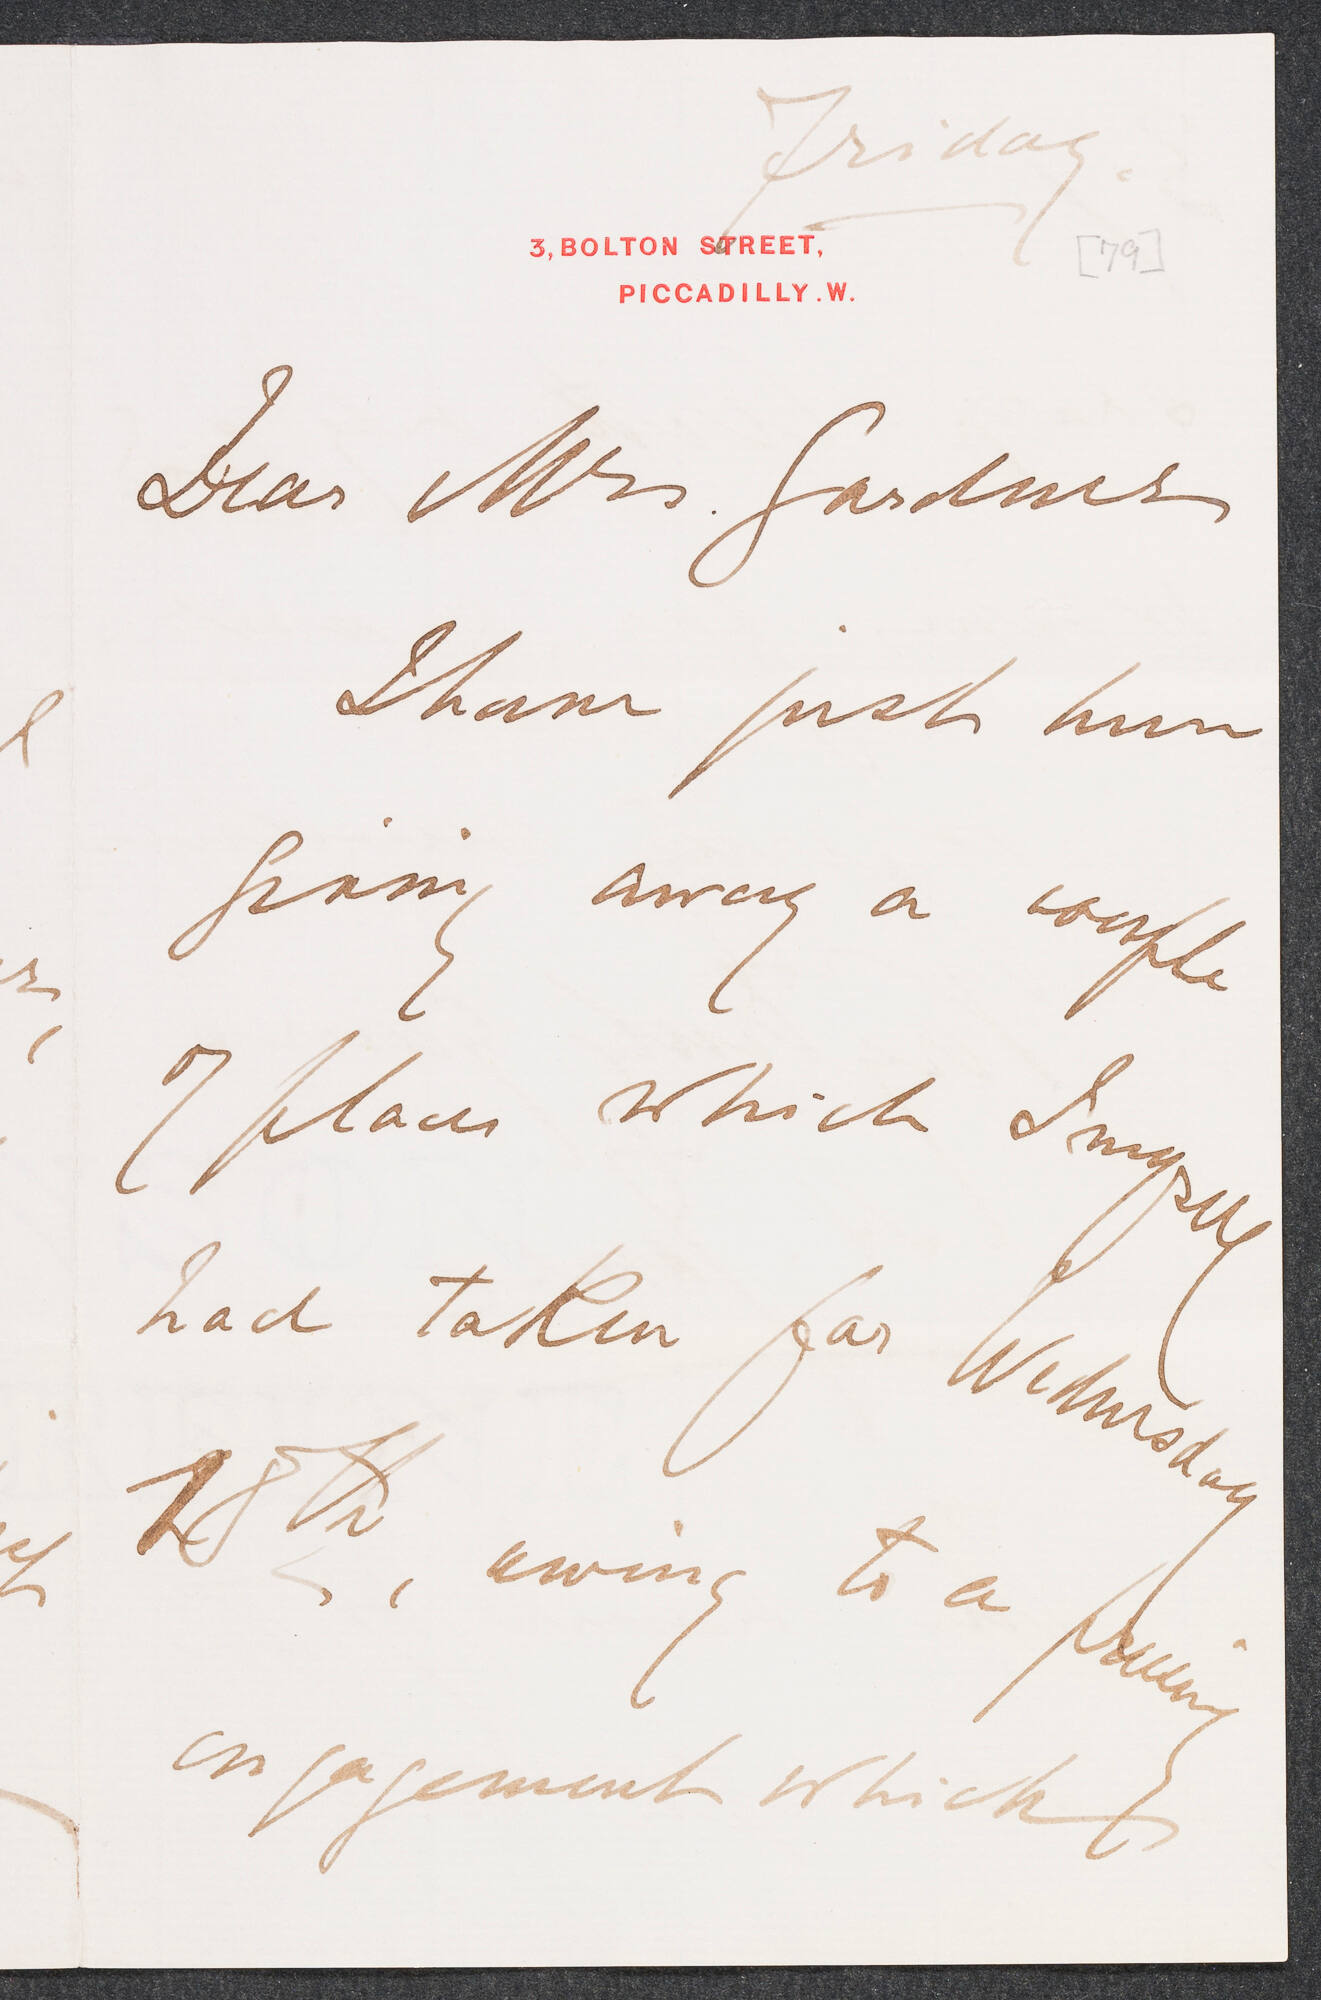 Friday.
3, BOLTON STREET,
PICCADILLY. W.
[79]
Dear Mrs. Gardner
I have just been
giving away a couple
of places which I myself
had taken for Wednesday
28th, owing to a pressing
engagement which